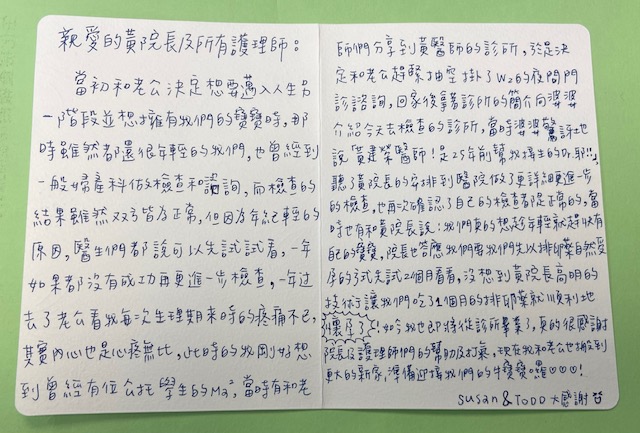 親愛的黃院長及所有護理師：
當初和老公決定想要邁入人生另
一階段並想擁有我們的寶寶時，那
時雖然都還很年輕的我們，也曾經到
一般婦產科做檢查和諮詢，而檢查的
結果雖然双方皆為正常，但因為年紀輕的
原因，醫生們都說可以先試試看，一年
如果都沒有成功再更進一步檢查，一年过
去了老公看我每一次生理期來時的疼痛不已，
其實內心也是心疼無比，此時的我剛好想
到曾經有位公托學生的Ma²，當時有和老
師們分享到黃醫師的診所，於是決
定和老公趕緊抽空掛了W2的夜間門
診諮詢，回家後拿著診所的簡介向婆婆
介紹今天去檢查的診所，當時婆婆驚訝地
說「黃建榮醫師！是25年前幫我接生的Dr.耶!!」
聽了黃院長的安排到醫院做了更詳細更進一步
的檢查，也再一次確認了自己的檢查都是正常的，當
時也有和黃院長說：我們真的想趁年輕就趕快有
自己的寶寶，院長也答應我們要我們先以排卵藥自然受
孕的方式先試2個月看看，沒想到黃院長高明的
技術，讓我們吃了1個月的排卵藥就順利地
懷孕了！如今我也即將從診所畢業了，真的很感謝
院長及護理師們的幫助及打氣，現在我和老公也搬到
更大的新家，準備迎接我們的牛寶寶囉♡♡♡！
Susan & TODD 大感謝